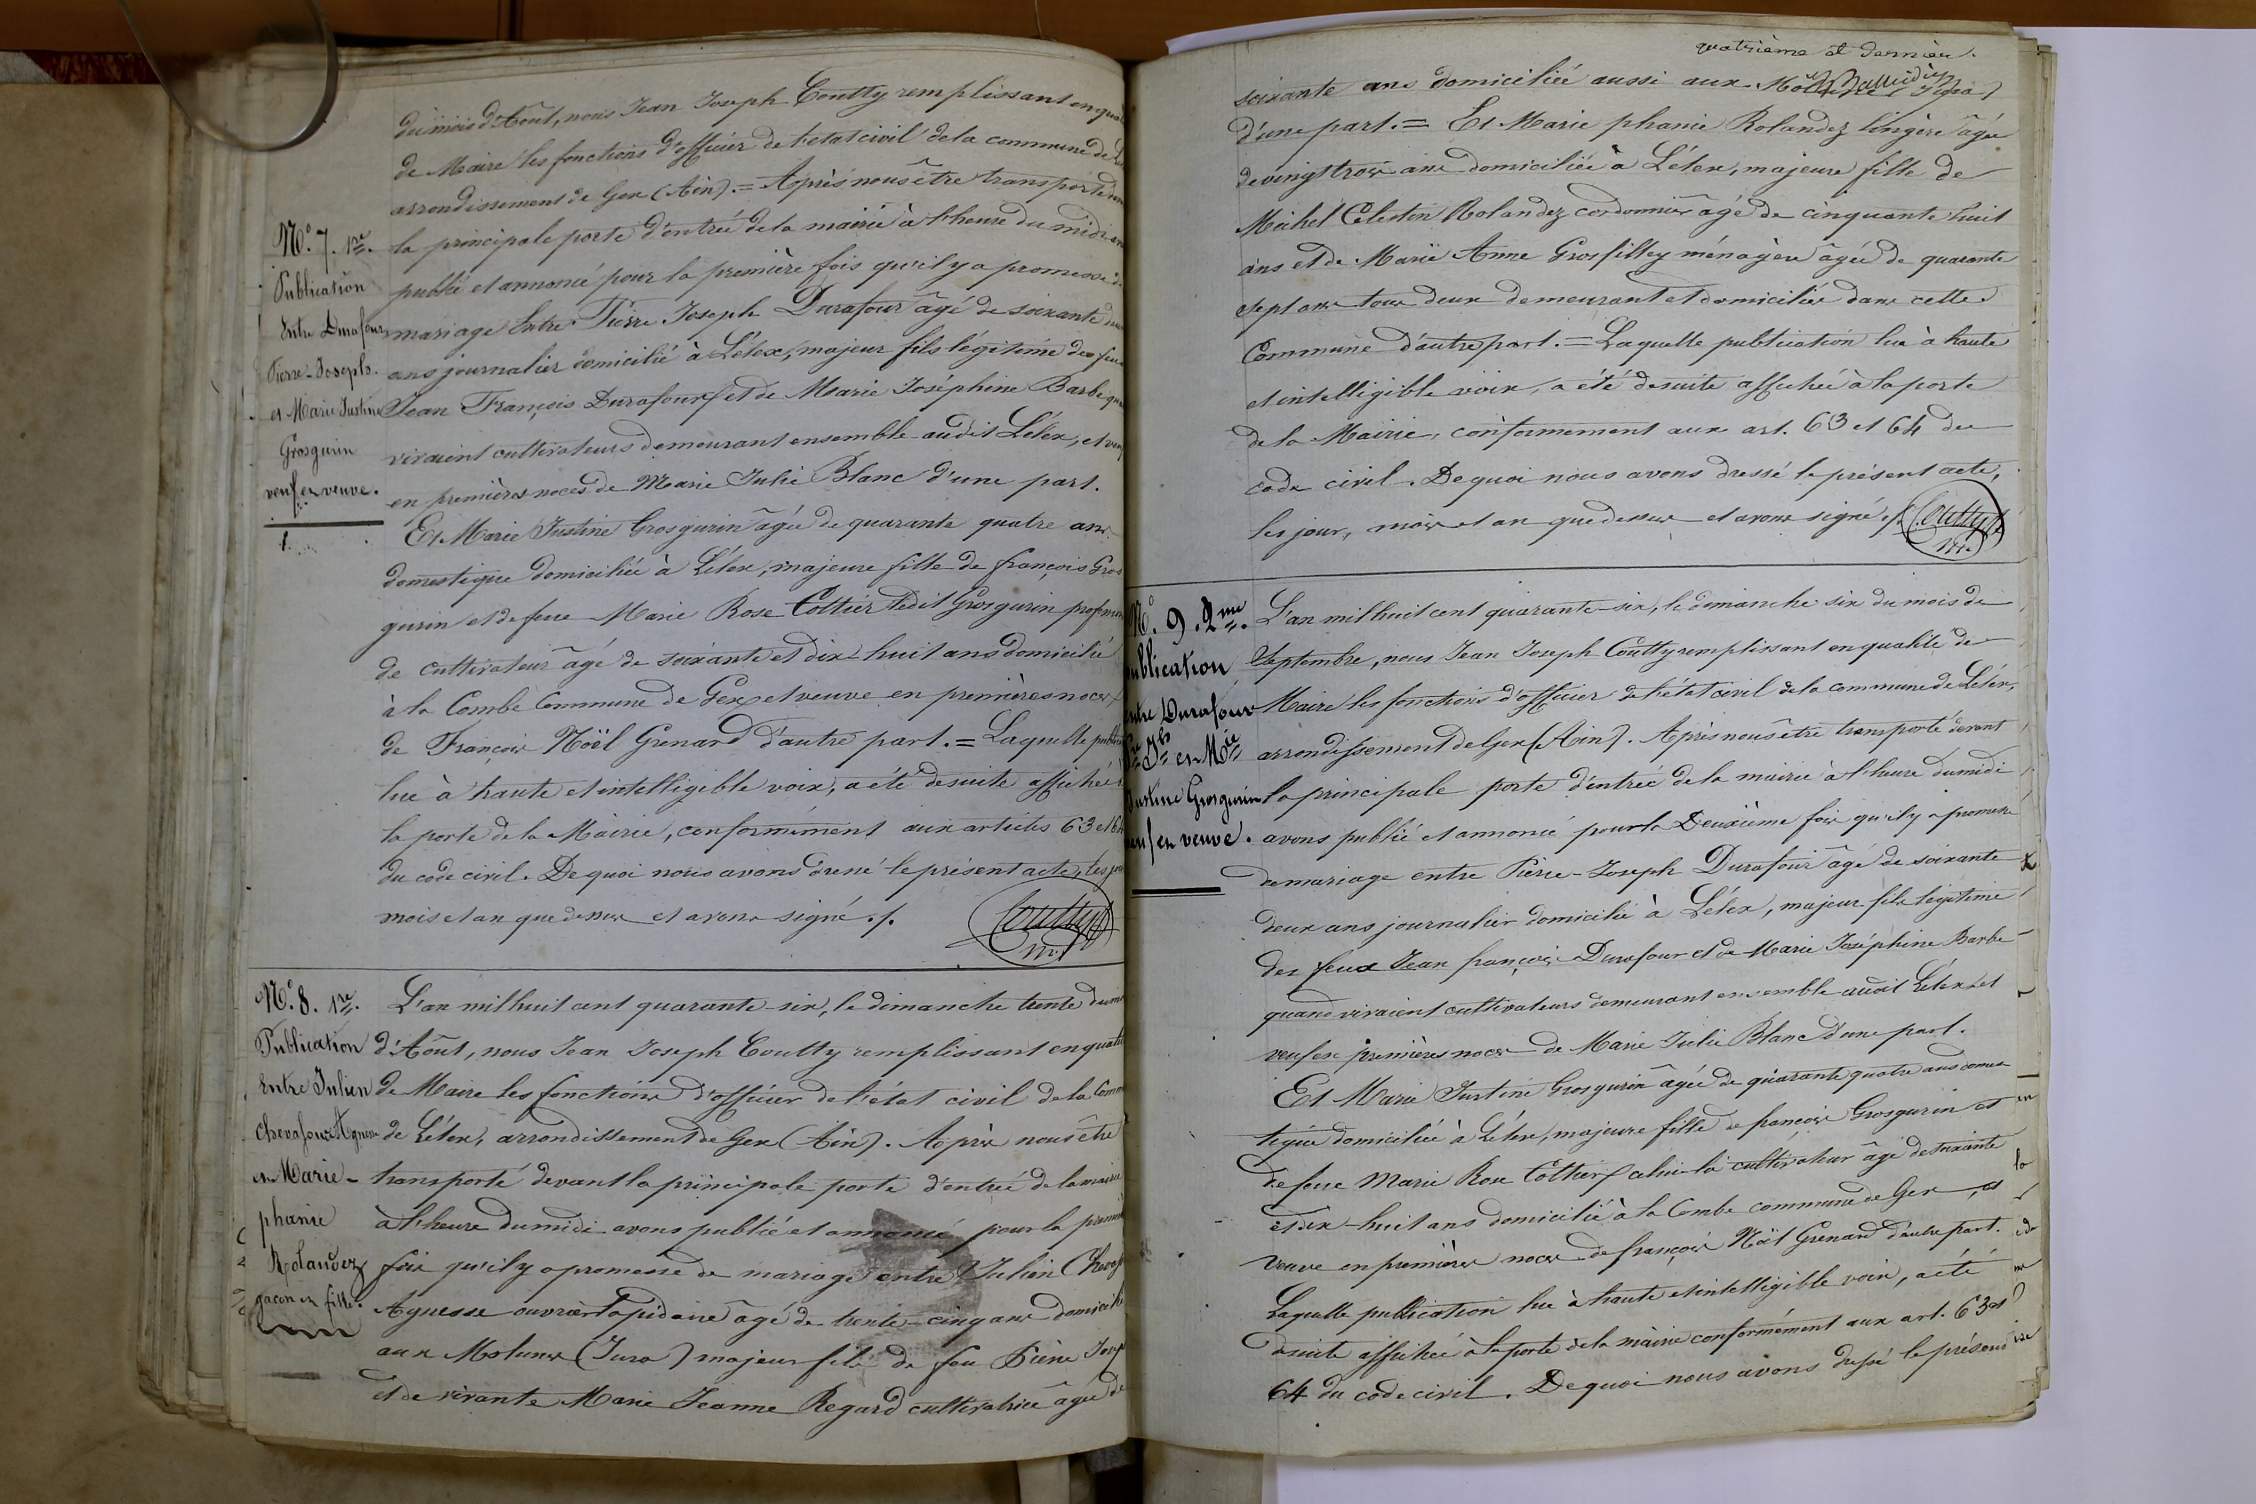 du mois d'Août, nous Jean Joseph Coutty remplissant en
de Maire les fonctions d'officier de l'état civil de la commune de
arrondissement de Gex (Ain). = Après nous être transporté
la principale porte d'entrée de la mairie à l'heure du midi
publié et annoncé pour la première fois qu'il y a promesse de
mariage Entre Pierre Joseph Durafour âgé de soixante deux
ans journalier domicilié à Lélex, majeur fils légitime des feux
Jean François Durafour et de Marie Joséphine Barbe
vivaient cultivateurs demeurant ensemble audit Lélex, et veuf
en premières noces de Marie Julie Blanc d'une part.
Et Marie Justine Grosgurin âgée de quarante quatre ans
domestique domiciliée à Lélex, majeure fille de françois Gros
gurin et de feue Marie Rose Cottier ledit Grosgurin
de cultivateur âgé de soixante et dix-huit ans domicilié
à la Combe Commune de Gex et veuve en premières noces
de François Noël Grenard d'autre part. = Laquelle
lue à haute et intelligible voix, a été desuite affichée
la porte de la Mairie, conformément aux articles 63 et 64
du code civil. De quoi nous avons dressé le présent acte, les
mois et an que dessus et avons signé ./.
Coutty
N°. 7. 1re.
Publication
Entre Durafour
Pierre-Joseph.
et Marie Justine
Grosgurin
veuf et veuve.
N°. 8. 1re.
Publication
Entre Julien
Chevassu Agnesse
et Marie-
phanie
Rolandez
garçon et fille.
L'an mil huit cent quarante-six, le dimanche trente du mois
d'Août, nous Jean Joseph Coutty remplissant en qualité
de Maire les fonctions d'officier de l'état civil de la
de Lélex, arrondissement de Gex (Ain). Après nous être
transporté devant la principale porte d'entrée de la mairie
à l'heure du midi avons publié et annoncé pour la
fois qu'il y a promesse de mariage entre Julien
Agnesse ouvrier lapidaire âgé de trente-cinq ans domicilié
aux Molunes (Jura) majeur fils de feu Pierre
et de vivante Marie Jeanne Regard cultivatrice âgée de
quatrième et dernier.
soixante ans domiciliée aussi aux
d'une part. = Et Marie phanie Rolandez lingère âgée
de vingt trois ans domiciliée à Lélex, majeure fille de
Michel Célestin Rolandez cordonnier âgé de cinquante huit
ans et de Marie Anne Grosfilley ménagère âgée de quarante
sept ans tous deux demeurant et domiciliés dans cette
Commune d'autre part. = Laquelle publication lue à haute
et intelligible voix, a été desuite affichée à la porte
de la Mairie, conformément aux art. 63 et 64 du
code civil. De quoi nous avons dressé le présent acte,
les jour, mois et an que dessus et avons signé ./. Coutty
N°. 9. 2me.
Publication
Entre Durafour
Pre Jh et Mie
Justine Grosgurin
veuf et veuve.
L'an mil huit cent quarante-six, le dimanche six du mois de
Septembre, nous Jean Joseph Coutty remplissant en qualité de
Maire les fonctions d'officier de l'état civil de la commune de Lélex,
arrondissement de Gex (Ain). Après nous être transporté devant
la principale porte d'entrée de la mairie à l'heure du midi
avons publié et annoncé pour la Deuxième fois qu'il y a promesse
de mariage entre Pierre-Joseph Durafour âgé de soixante
deux ans journalier domicilié à Lélex, majeur fils légitime
des feux Jean françois Durafour et de Marie Joséphine Barbe
quand vivaient cultivateurs demeurant ensemble audit Lélex et
veuf en premières noces de Marie Julie Blanc d'une part.
Et Marie Justine Grosgurin âgée de quarante quatre ans domes
tique domiciliée à Lélex, majeure fille de françois Grosgurin et
de feue Marie Rose Cottier celui-là cultivateur âgé de soixante
et dix-huit ans domicilié à la Combe commune de Gex, et
veuve en premières noces de françois Noël Grenard d'autre part.
Laquelle publication lue à haute et intelligible voix, a été
desuite affichée à la porte de la mairie conformément aux art. 63 et
64 du code civil. De quoi nous avons dressé le présent